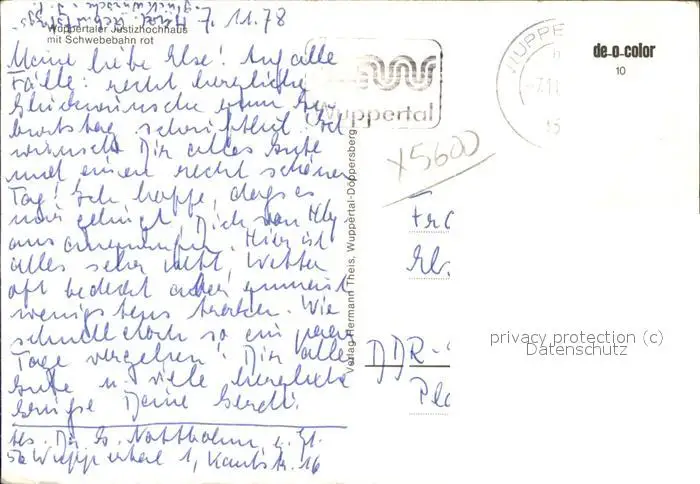 7. 11. 78
Wuppertaler Justizhochhaus
mit Schwebebahn rot
Meine liebe Else! Auf alle
Fälle: recht herzliche
Glückwünsche zum Ge-
burtstag schriftlich! Ich
wünsche Dir alles Gute
und einen recht schönen
Tag! Ich hoffe, dass es
mir gelingt Dich von
aus anzurufen. Hier ist
alles sehr nett, Wetter
oft bedeckt aber zumeist
wenigstens trocken. Wie
schnell doch so ein paar
Tage vergehen! Dir alles
Gute u. viele herzliche
Grüsse Deine Gerdi.
Abs. Dr. G. Notthohm, z. Zt.
56 Wuppertal 1, Kantstr. 16
Verlag Hermann Theis, Wuppertal-Döppersberg
Wuppertal
WUPPE
de-o-color
10
X5600
Fra
DDR-
privacy protection (c)
Datenschutz